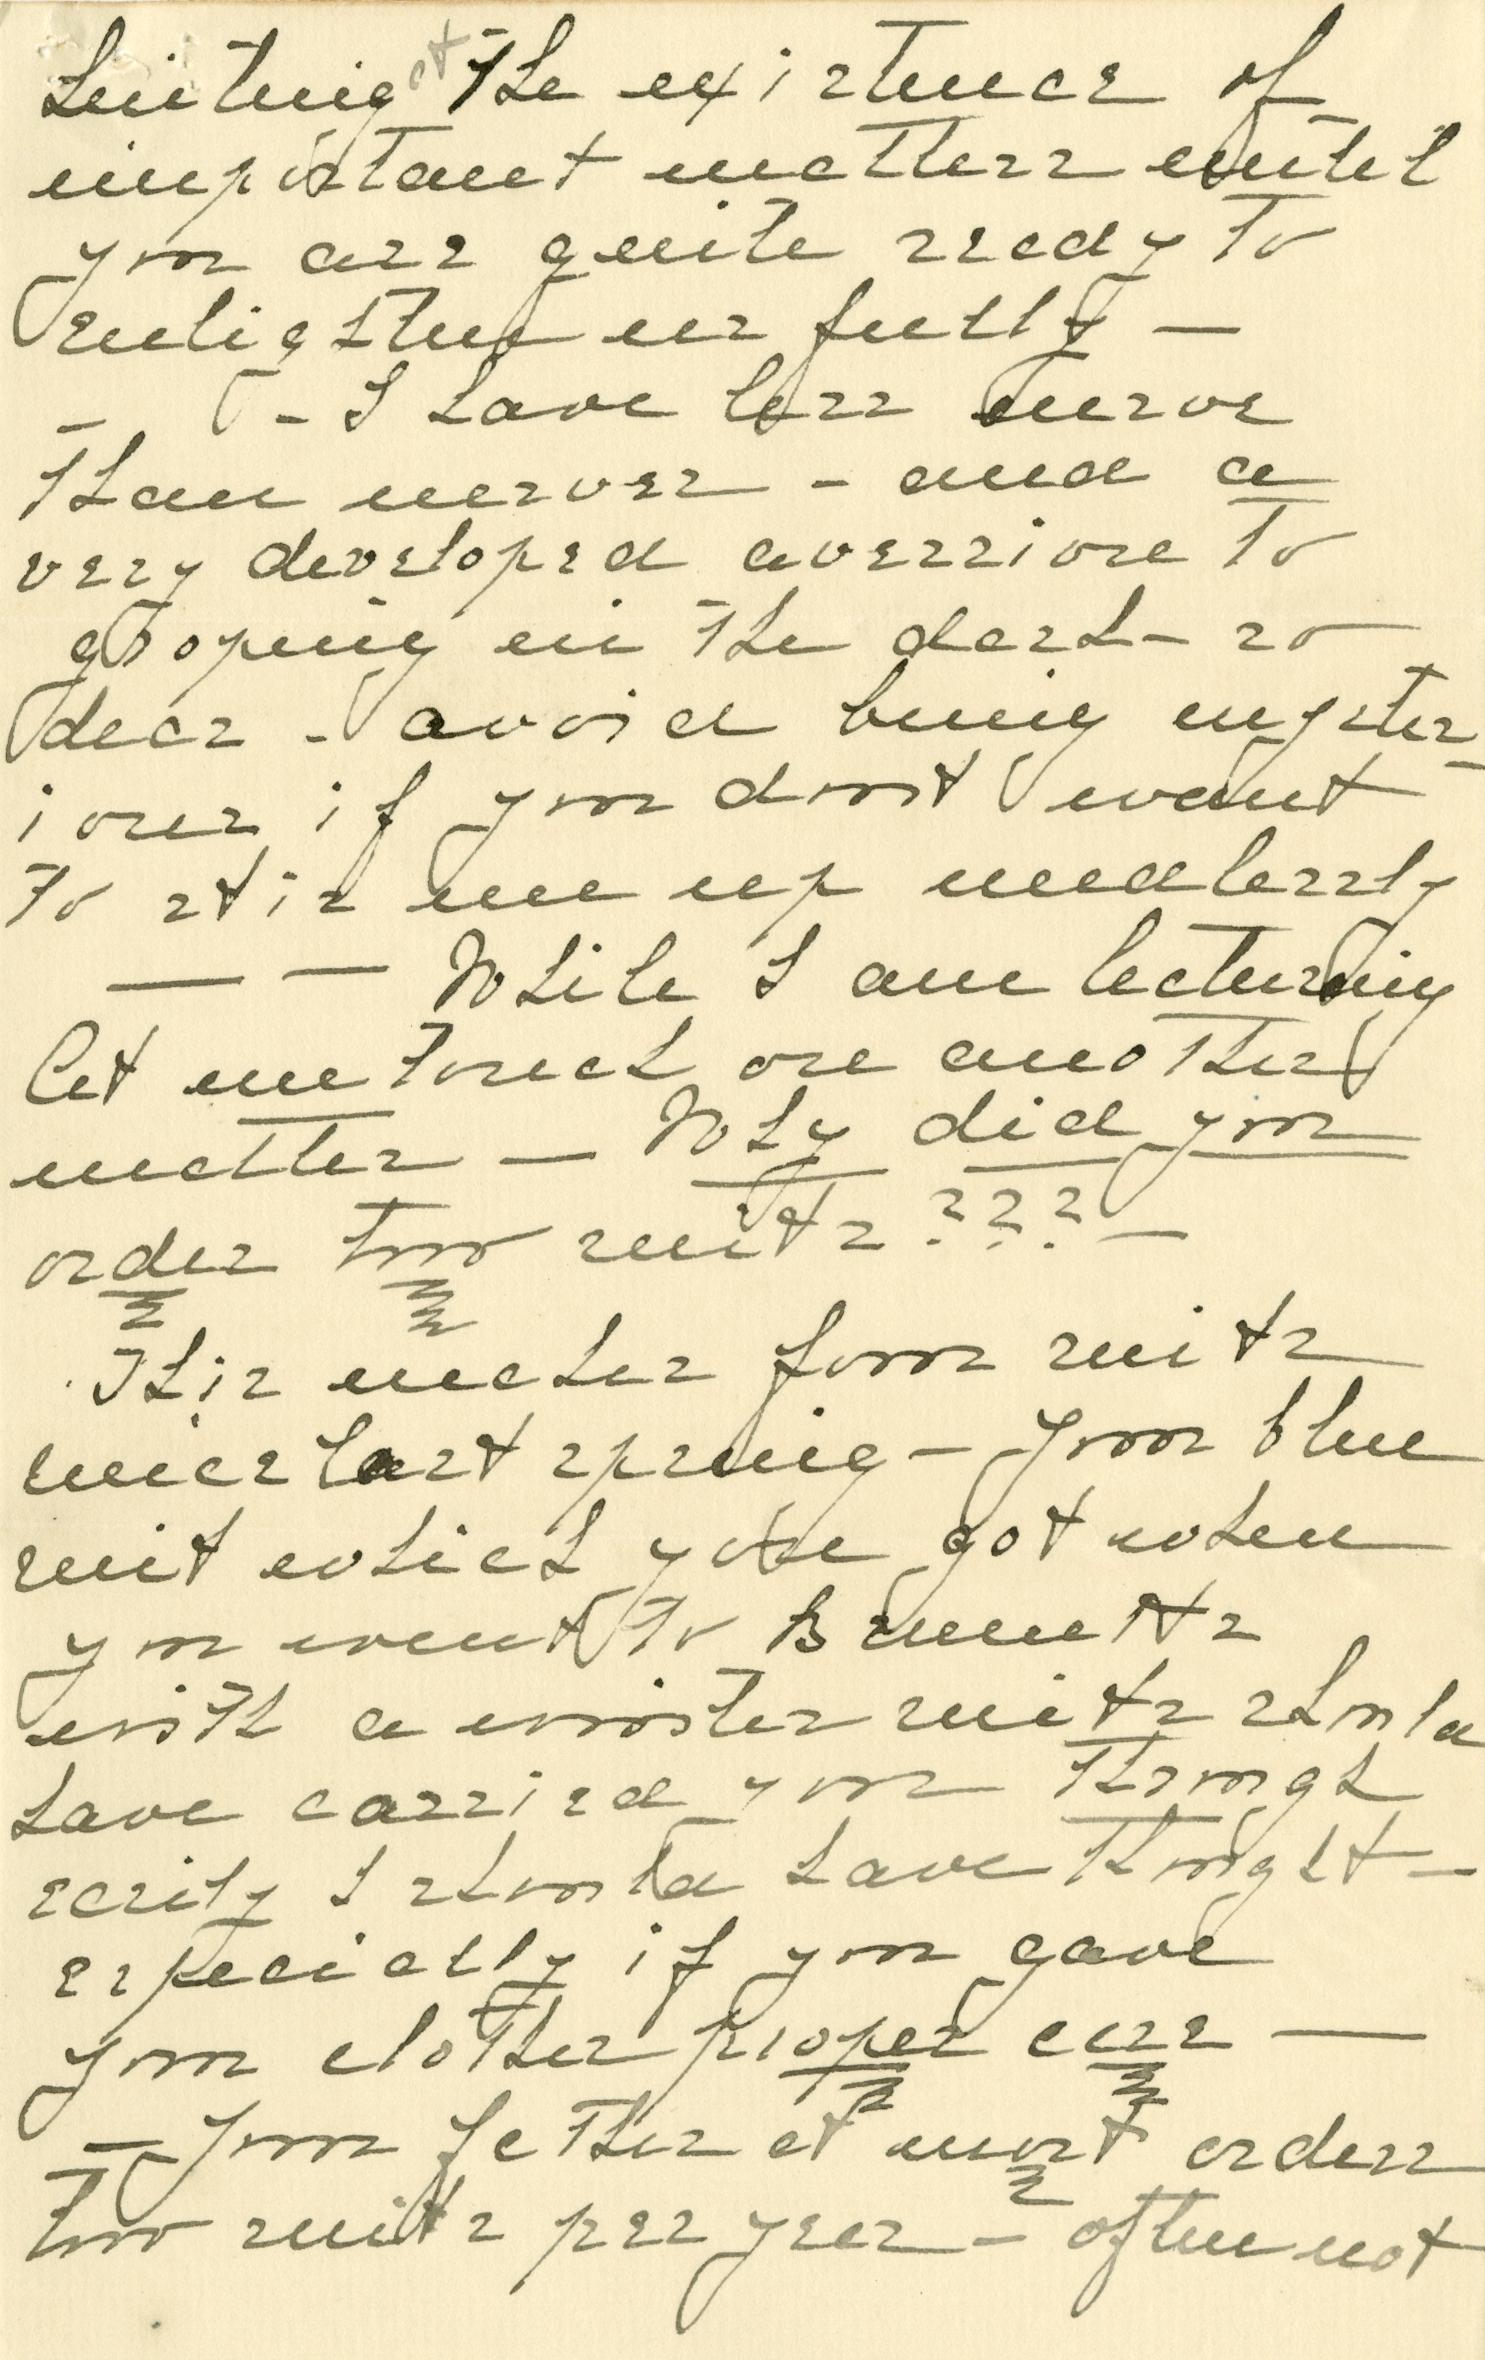 hinting at the existence of
important matters until
you are quite ready to
enlighten us fully —
— - I have less nerve
than nerves - and a
very developed aversion to
groping in the dark - so
dear - avoid being myster-
ious if you don't want
to stir me up needlessly
— — While I am lecturing
let me touch on another
matter — Why did you
order two suits ??? —
This makes four suits
since last spring - your blue
suit which you got when
you went to Bennetts
with a winter suits should
have carried you through
easily I should have thought -
especially if you gave
your clothes proper care —
— Your father at most orders
two suits per year - often not